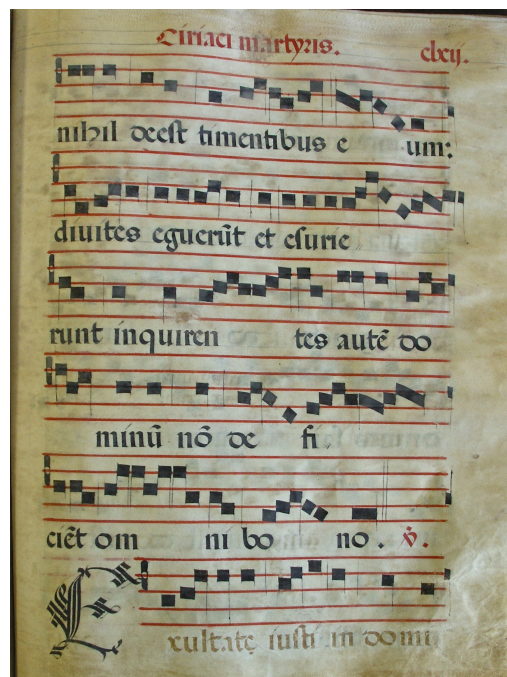 Ciriaci martyris. clxij.
nihil deest timentibus e um:
diuites eguerūt et esurie
runt inquiren tes autē do
minū nō de fi.
ciēt om ni bo no. v̄.
Exultate iusti in domi